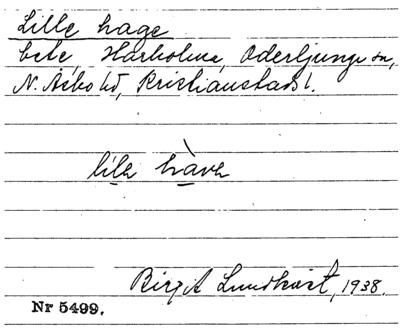 Lille hage
bete, Harholma, Oderljunga sn,
N. Åsbo hd, Kristianstads l.
lilə hàvə
Birgit Lundkvist, 1938.
Nr 5499.